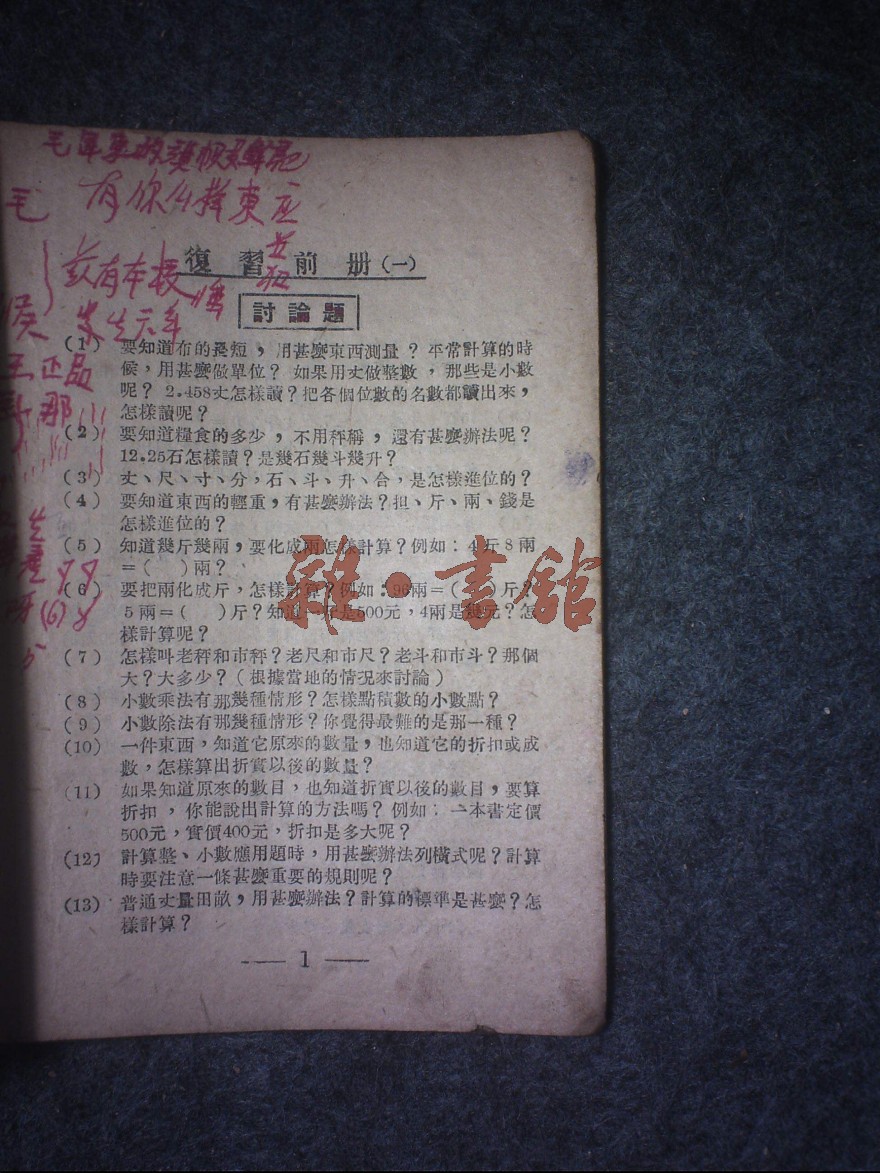 有你么择東
毛
復習前册(一)
討論題
(1) 要知道布的長短，用甚麼東西測量？平常計算的時
候，用甚麼做單位？如果用丈做整數，那些是小數
呢？2.458丈怎樣讀？把各個位數的名數都讀出來，
怎樣讀呢？
(2) 要知道糧食的多少，不用秤稱，還有甚麼辦法呢？
12.25石怎樣讀？是幾石幾斗幾升？
(3) 丈、尺、寸、分，石、斗、升、合，是怎樣進位的？
(4) 要知道東西的輕重，有甚麼辦法？担、斤、兩、錢是
怎樣進位的？
(5) 知道幾斤幾兩，要化成兩怎樣計算？例如：4斤8兩
=( )兩？
(6) 要把兩化成斤，怎樣計算？例如：96兩=( )斤？
5兩=( )斤？知道一斤是500元，4兩是幾元？怎
樣計算呢？
(7) 怎樣叫老秤和市秤？老尺和市尺？老斗和市斗？那個
大？大多少？(根據當地的情況來討論)
(8) 小數乘法有那幾種情形？怎樣點積數的小數點？
(9) 小數除法有那幾種情形？你覺得最難的是那一種？
(10) 一件東西，知道它原來的數量，也知道它的折扣或成
數，怎樣算出折實以後的數量？
(11) 如果知道原來的數目，也知道折實以後的數目，要算
折扣，你能說出計算的方法嗎？例如：一本書定價
500元，實價400元，折扣是多大呢？
(12) 計算整、小數應用題時，用甚麼辦法列橫式呢？計算
時要注意一條甚麼重要的規則呢？
(13) 普通丈量田畝，用甚麼辦法？計算的標準是甚麼？怎
樣計算？
— 1 —
雜·書館